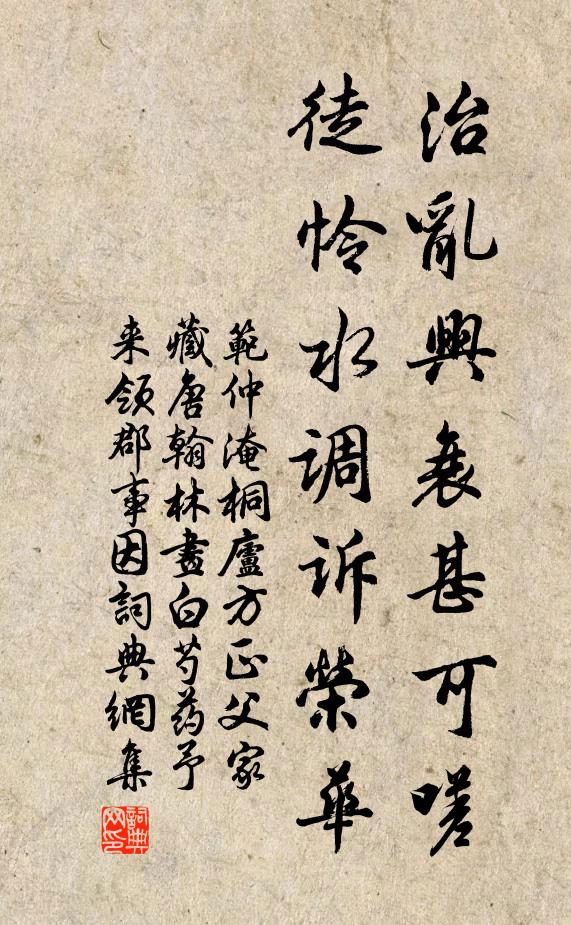 治亂興衰甚可嗟
徒怜水調訴榮華
範仲淹桐廬方正父家
藏唐翰林畫白芍葯予
来領郡事因詞典網集
詞典网印